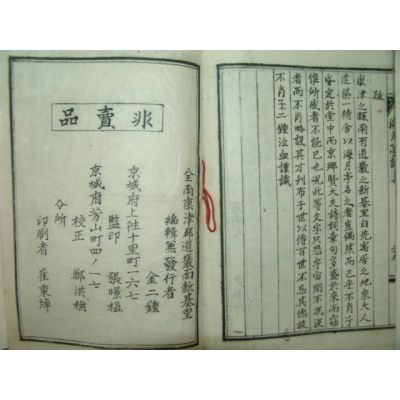 跋
康津之縣南有道巖之新基里自先寓居之地家大人
建築一精舍以海月亭名之者豈偶然而已乎不肖子
昏定於堂中而京鄕賢大夫詩詞章句多盛於來而霜
惟所感者不能已也况此等文字只恐宇宙間不泯沒
者而不肖略設其才刊布于世以傳百世不忘其德故
不肖 二鍾泣血謹識
非賣品
全南康津郡道巖面新基里
編輯兼發行者 金二鍾
京城府上往十里町一六七
監印 張暻植
京城府芳山町四ノ一七
校正 鄭洪
仝所
印刷者 崔東